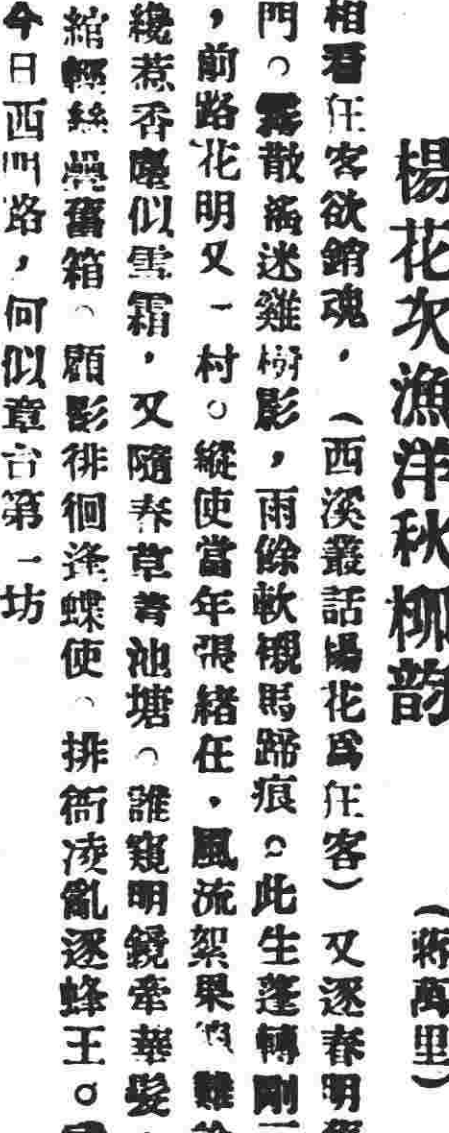 楊花次漁洋秋柳韵
(蔣萬里)
相看狂客欲銷魂，(西溪叢話楊花爲狂客)又逐春明
門。霧散滿迷雞樹影，雨餘軟襯馬蹄痕。此生蓬轉剛
，前路花明又一村。縱使當年張緒在，風流絮果 難
纔惹香塵似雪霜，又隨春草靑池塘。誰窺明鏡牽華髮，
綰輕絲 舊箱。顧影徘徊逢蝶使。排衙凌亂逐蜂王。
今日西門路，何似章台第一坊